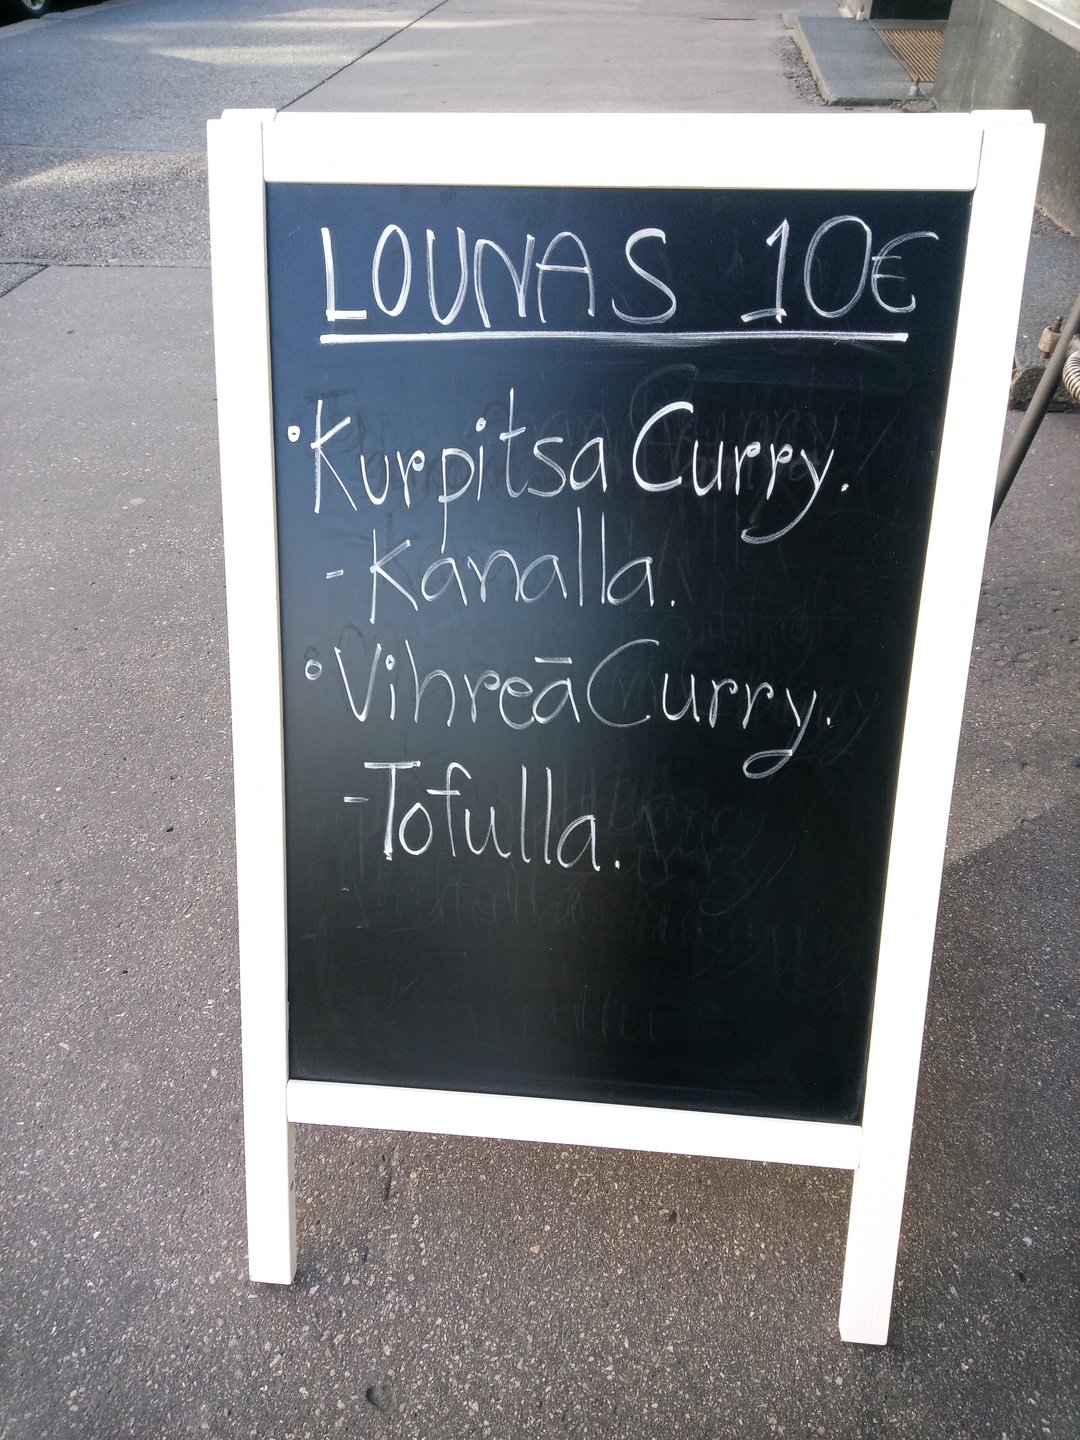 LOUNAS 10€
• Kurpitsa Curry.
- Kanalla.
• Vihreā Curry.
- Tofulla.